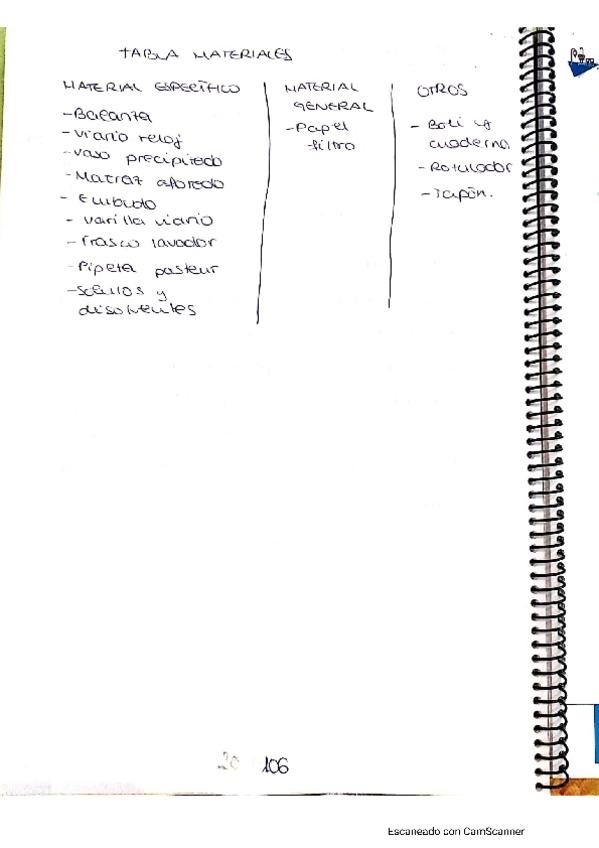 TABLA MATERIALES
MATERIAL ESPECÍFICO
-Balanza
-Vidrio reloj
-Vaso precipitado
-Matraz aforado
- Embudo
- Varilla vidrio
- Frasco lavador
-Pipeta pasteur
-Solutos y
disolventes
MATERIAL
GENERAL
-Papel
filtro
OTROS
- Boli y
cuaderno
- Rotulador
- Tapón.
20 106
Escaneado con CamScanner